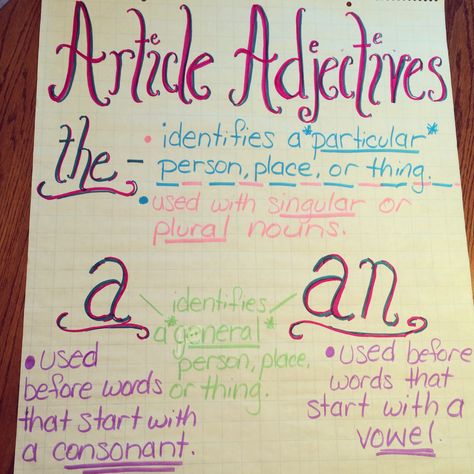 Article Adjectives
the - • identifies a *particular*
person, place, or thing.
• used with singular or
plural nouns.
a
an
identifies
a *general*
person, place,
or thing.
• used
before words
that start with
a consonant.
• used before
words that
start with a
vowel.